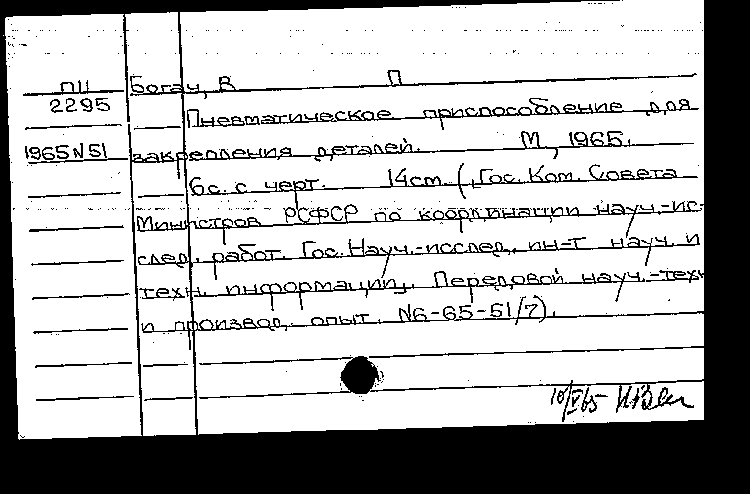 ПII Богач, В П
2295 Пневматическое приспособление для
1965 N 51 закрепления деталей. М, 1965.
6с. с черт. 14см. (Гос. Ком. Совета
Министров РСФСР по координации науч.-ис-
след. работ. Гос. Науч.-исслед. ин-т науч. и
техн. информации. Передовой науч.-техн
и производ. опыт. N6-65-51/7).
10/V65